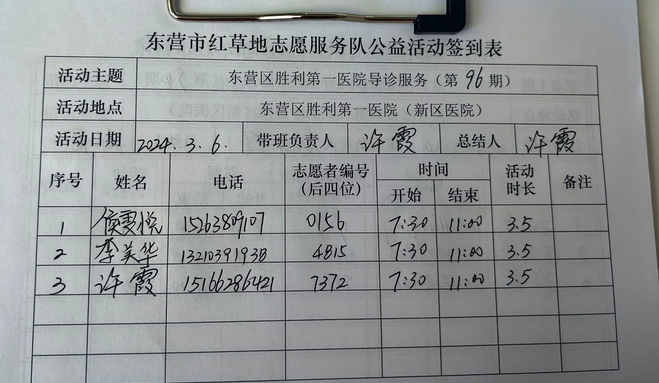 东营市红草地志愿服务队公益活动签到表
活动主题 东营区胜利第一医院导诊服务（第 96 期）
活动地点 东营区胜利第一医院（新区医院）
活动日期 2024.3.6. 带班负责人 许霞 总结人 许霞
序号 姓名 电话 志愿者编号（后四位） 时间 开始 结束 活动时长 备注
1 侯雯悦 15263809107 0156 7:30 11:00 3.5
2 李美华 13210391938 4815 7:30 11:00 3.5
3 许霞 15166286421 7372 7:30 11:00 3.5